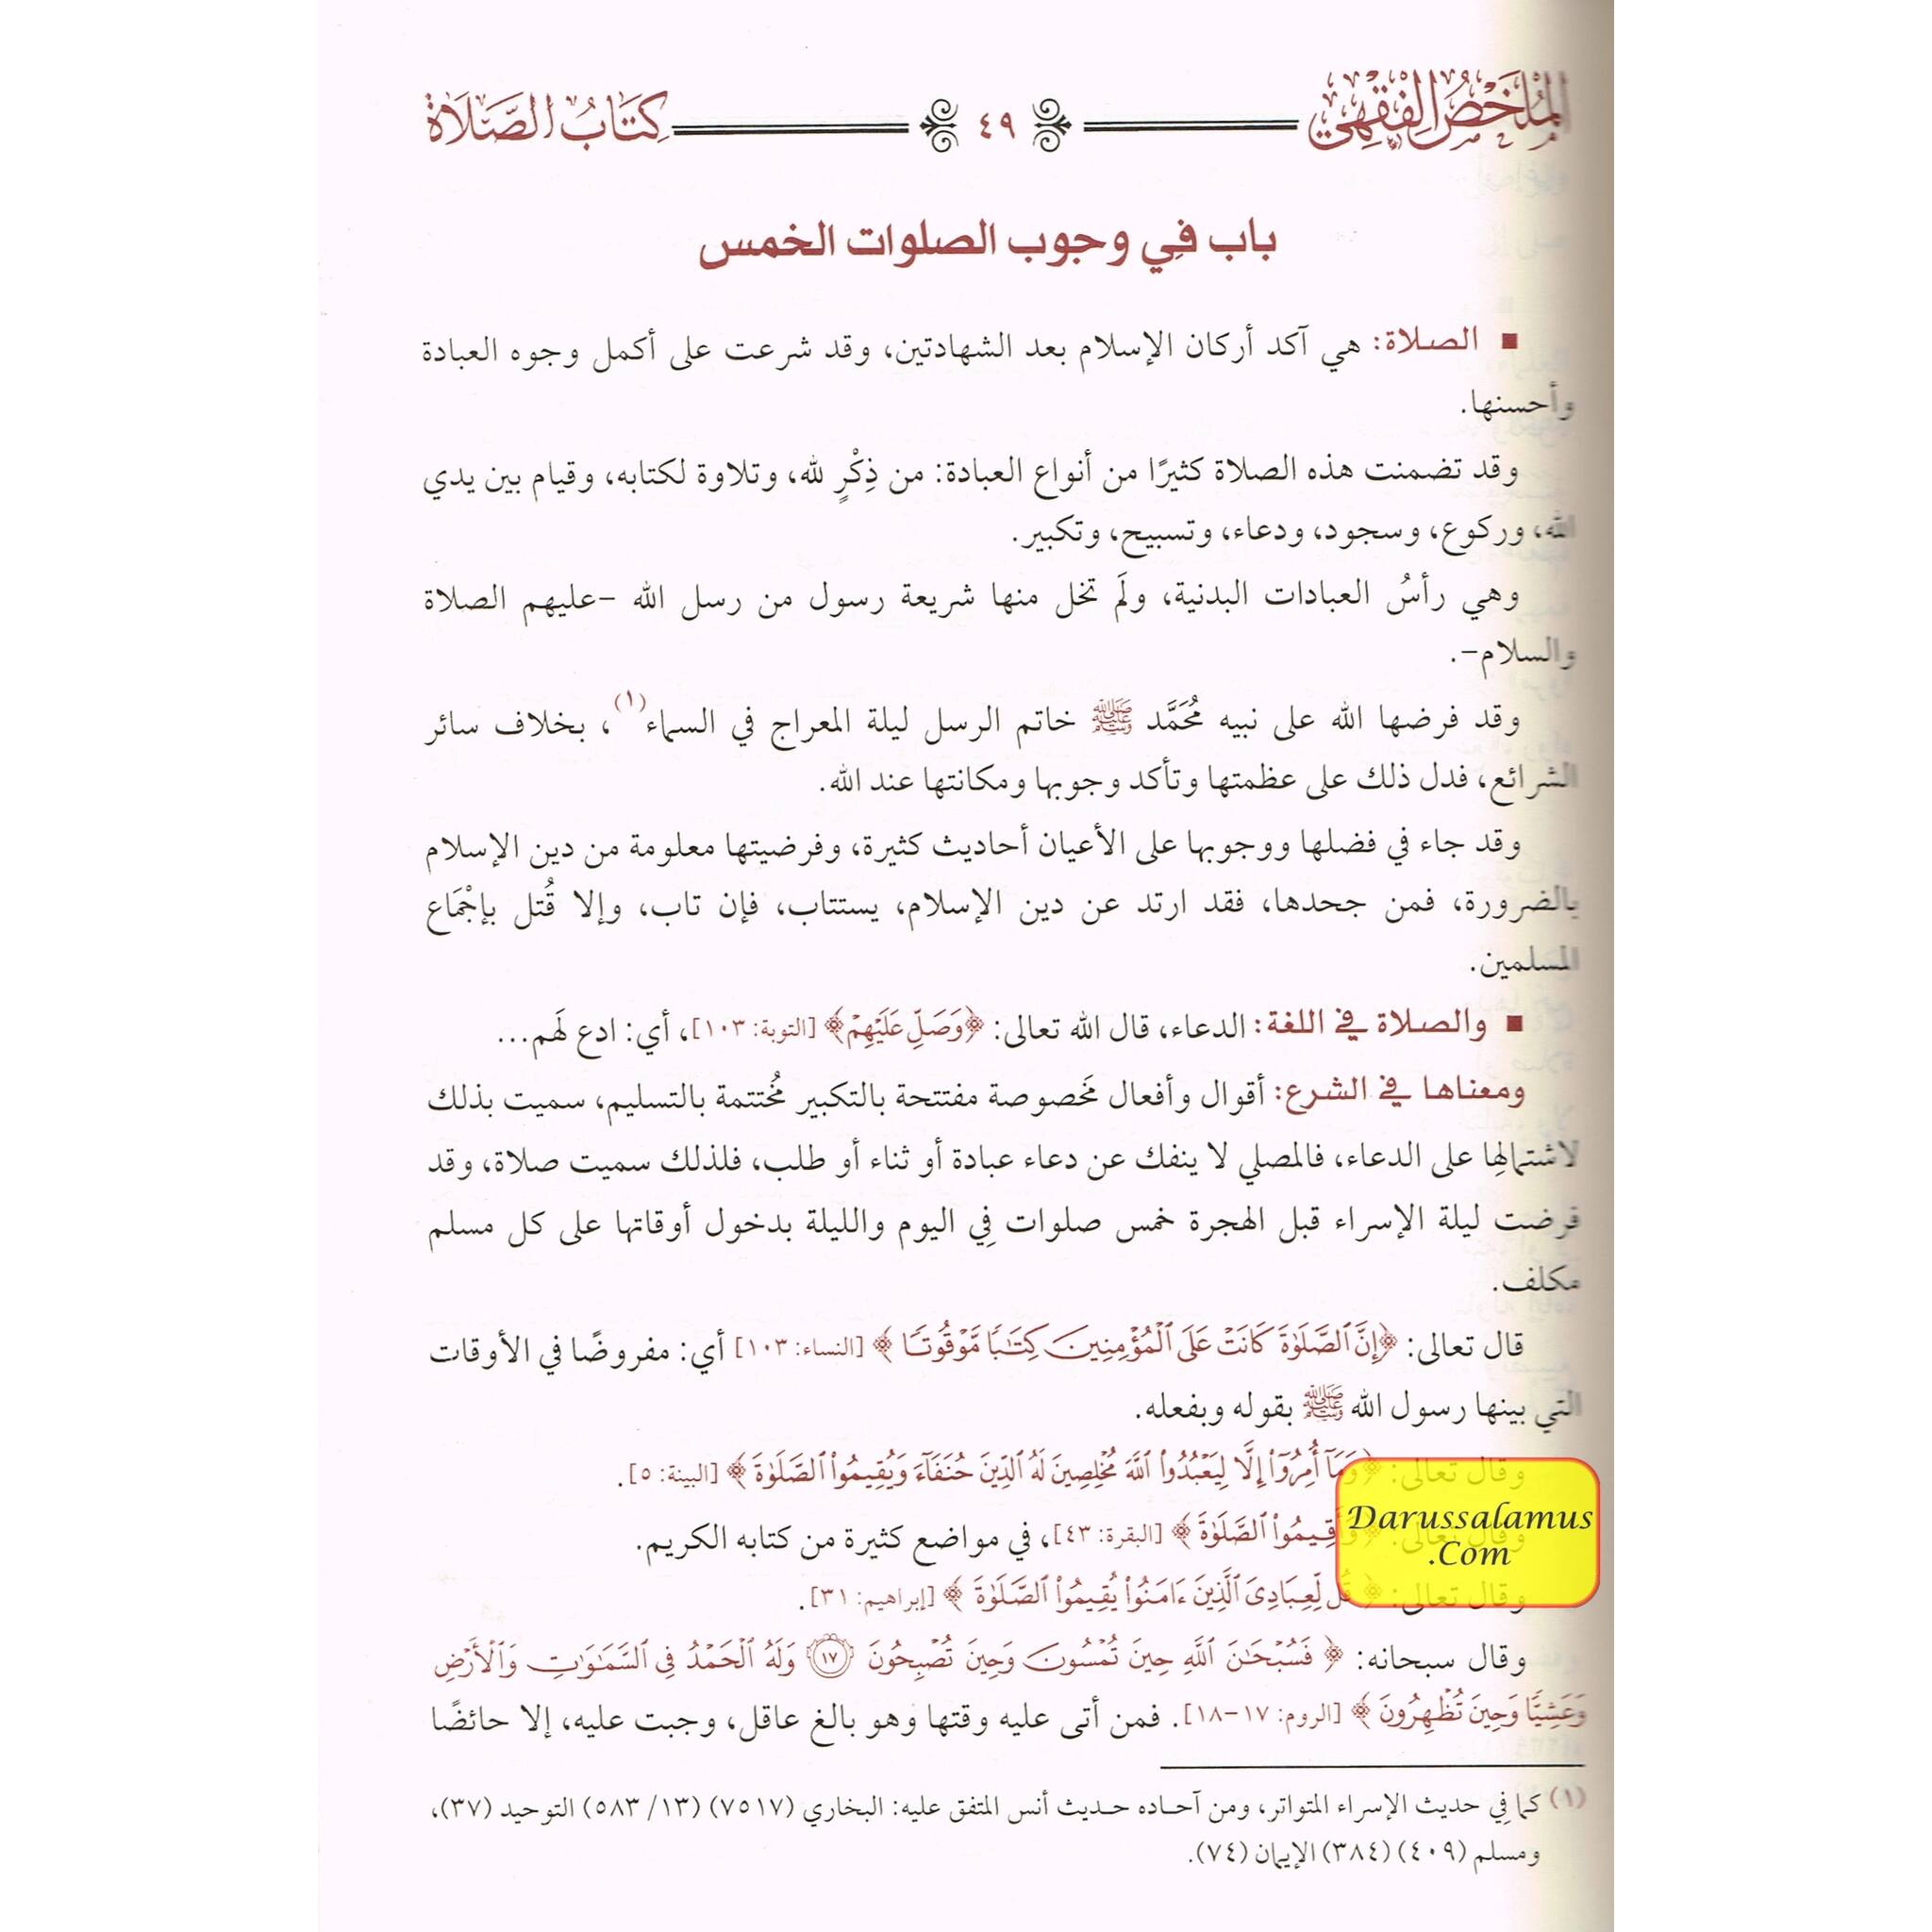 الملخص الفقهي
٤٩
كتاب الصلاة
باب فِي وجوب الصلوات الخمس
■ الصلاة: هي آكد أركان الإسلام بعد الشهادتين، وقد شرعت على أكمل وجوه العبادة
وأحسنها.
وقد تضمنت هذه الصلاة كثيرًا من أنواع العبادة: من ذِكْرٍ لله، وتلاوة لكتابه، وقيام بين يدي
الله، وركوع، وسجود، ودعاء، وتسبيح، وتكبير.
وهي رأسُ العبادات البدنية، ولَم تخل منها شريعة رسول من رسل الله -عليهم الصلاة
والسلام-.
وقد فرضها الله على نبيه مُحَمَّد ﷺ خاتم الرسل ليلة المعراج في السماء(١)، بخلاف سائر
الشرائع، فدل ذلك على عظمتها وتأكد وجوبها ومكانتها عند الله.
وقد جاء في فضلها ووجوبها على الأعيان أحاديث كثيرة، وفرضيتها معلومة من دين الإسلام
بالضرورة، فمن جحدها، فقد ارتد عن دين الإسلام، يستتاب، فإن تاب، وإلا قُتل بإجْمَاع
المسلمين.
■ والصلاة في اللغة: الدعاء، قال الله تعالى: ﴿وَصَلِّ عَلَيْهِمْ﴾ [التوبة: ١٠٣]، أي: ادع لَهم...
ومعناها في الشرع: أقوال وأفعال مَخصوصة مفتتحة بالتكبير مُختتمة بالتسليم، سميت بذلك
لاشتمالِها على الدعاء، فالمصلي لا ينفك عن دعاء عبادة أو ثناء أو طلب، فلذلك سميت صلاة، وقد
فرضت ليلة الإسراء قبل الهجرة خمس صلوات فِي اليوم والليلة بدخول أوقاتها على كل مسلم
مكلف.
قال تعالى: ﴿إِنَّ ٱلصَّلَوٰةَ كَانَتْ عَلَى ٱلْمُؤْمِنِينَ كِتَٰبًا مَّوْقُوتًا﴾ [النساء: ١٠٣] أي: مفروضًا في الأوقات
التي بينها رسول الله ﷺ بقوله وبفعله.
وقال تعالى: ﴿وَمَآ أُمِرُوٓا۟ إِلَّا لِيَعْبُدُوا۟ ٱللَّهَ مُخْلِصِينَ لَهُ ٱلدِّينَ حُنَفَآءَ وَيُقِيمُوا۟ ٱلصَّلَوٰةَ﴾ [البينة: ٥].
وقال تعالى: ﴿وَأَقِيمُوا۟ ٱلصَّلَوٰةَ﴾ [البقرة: ٤٣]، في مواضع كثيرة من كتابه الكريم.
وقال تعالى: ﴿قُل لِّعِبَادِىَ ٱلَّذِينَ ءَامَنُوا۟ يُقِيمُوا۟ ٱلصَّلَوٰةَ﴾ [إبراهيم: ٣١].
Darussalamus
.Com
وقال سبحانه: ﴿فَسُبْحَٰنَ ٱللَّهِ حِينَ تُمْسُونَ وَحِينَ تُصْبِحُونَ ١٧ وَلَهُ ٱلْحَمْدُ فِى ٱلسَّمَٰوَٰتِ وَٱلْأَرْضِ
وَعَشِيًّا وَحِينَ تُظْهِرُونَ﴾ [الروم: ١٧-١٨]. فمن أتى عليه وقتها وهو بالغ عاقل، وجبت عليه، إلا حائضًا
(١) كما فِي حديث الإسراء المتواتر، ومن آحاده حديث أنس المتفق عليه: البخاري (٧٥١٧) (١٣/ ٥٨٣) التوحيد (٣٧)،
ومسلم (٤٠٩) (٣٨٤) الإيمان (٧٤).